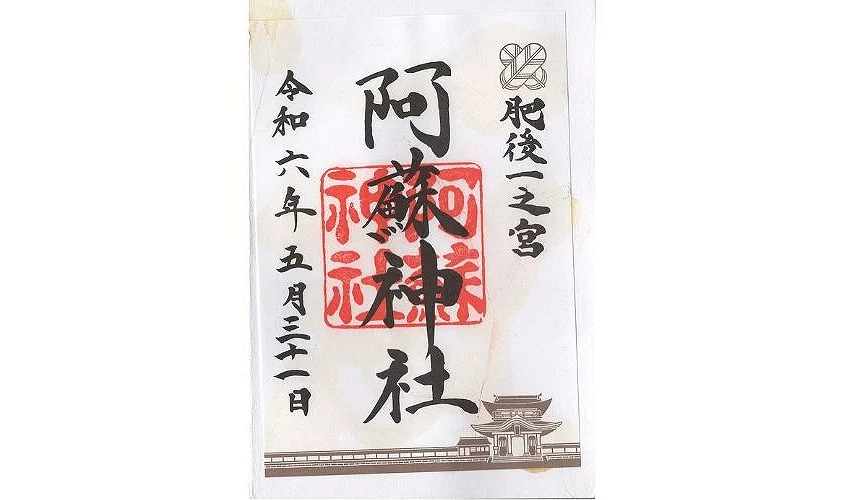 肥後一之宮
阿蘇神社
阿蘇
神社
令和六年五月三十一日